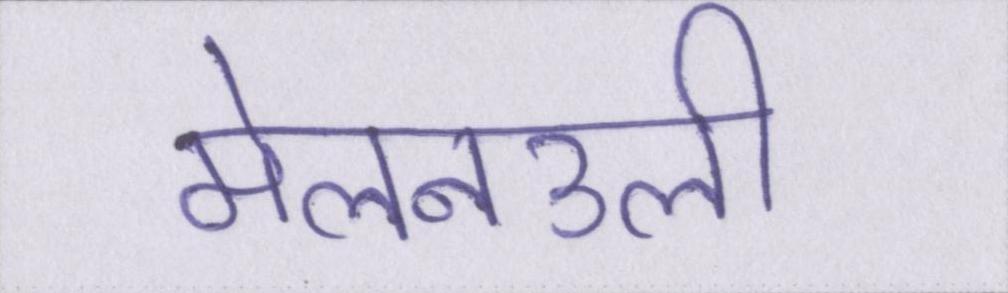 मेलनउली